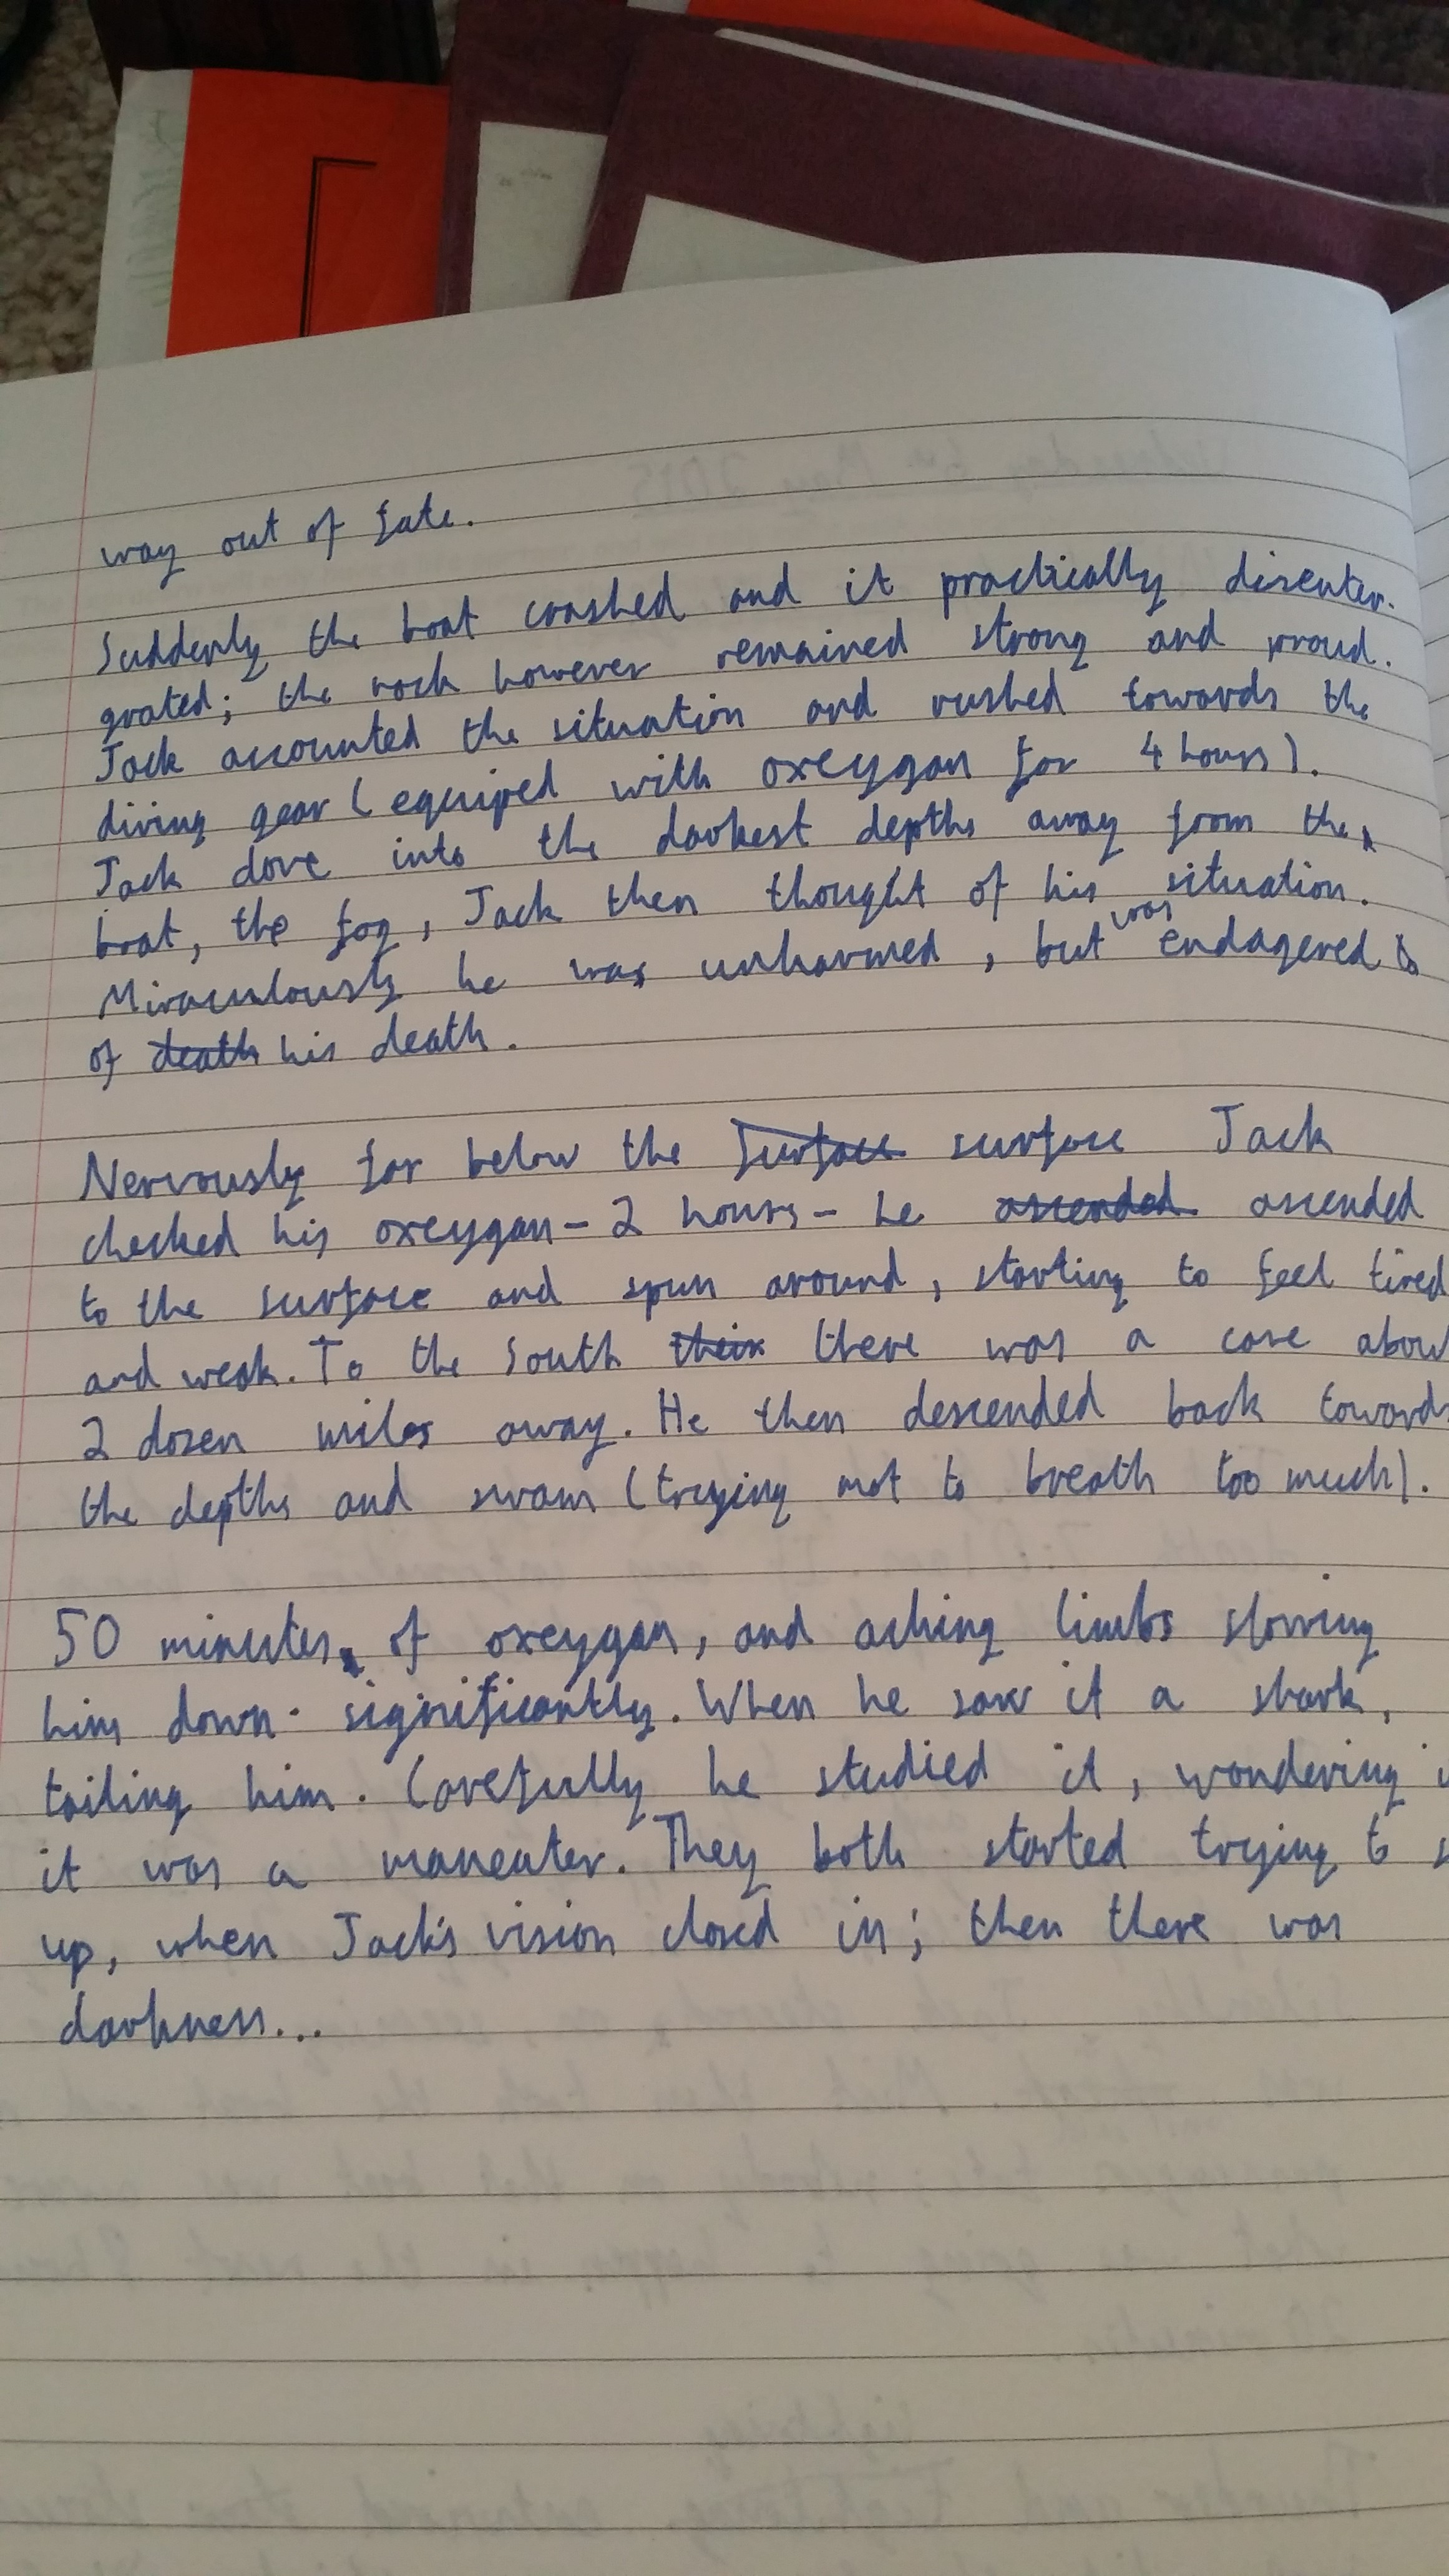 way out of fate.
Suddenly the boat crashed and it practically disenter-
grated; the rock however remained strong and proud.
Jack accounted the situation and rushed towards the
diving gear (equiped with oxeygan for 4 hours).
Jack dove into the darkest depths away from the
boat, the fog, Jack then thought of his situation.
Miraculously he was unharmed, but was endagered
of death his death.
Nervously far below the surface surface Jack
checked his oxeygan - 2 hours - he ascended ascended
to the surface and spun around, starting to feel tired
and weak. To the South their there was a cave abou
2 dozen miles away. He then descended back towards
the depths and swam (trying not to breath too much).
50 minutes of oxeygan, and aching limbs slowing
him down significantly. When he saw it a shark,
tailing him. Carefully he studied it, wondering i
it was a maneater. They both started trying to s
up, when Jack's vision closed in; then there was
darkness...